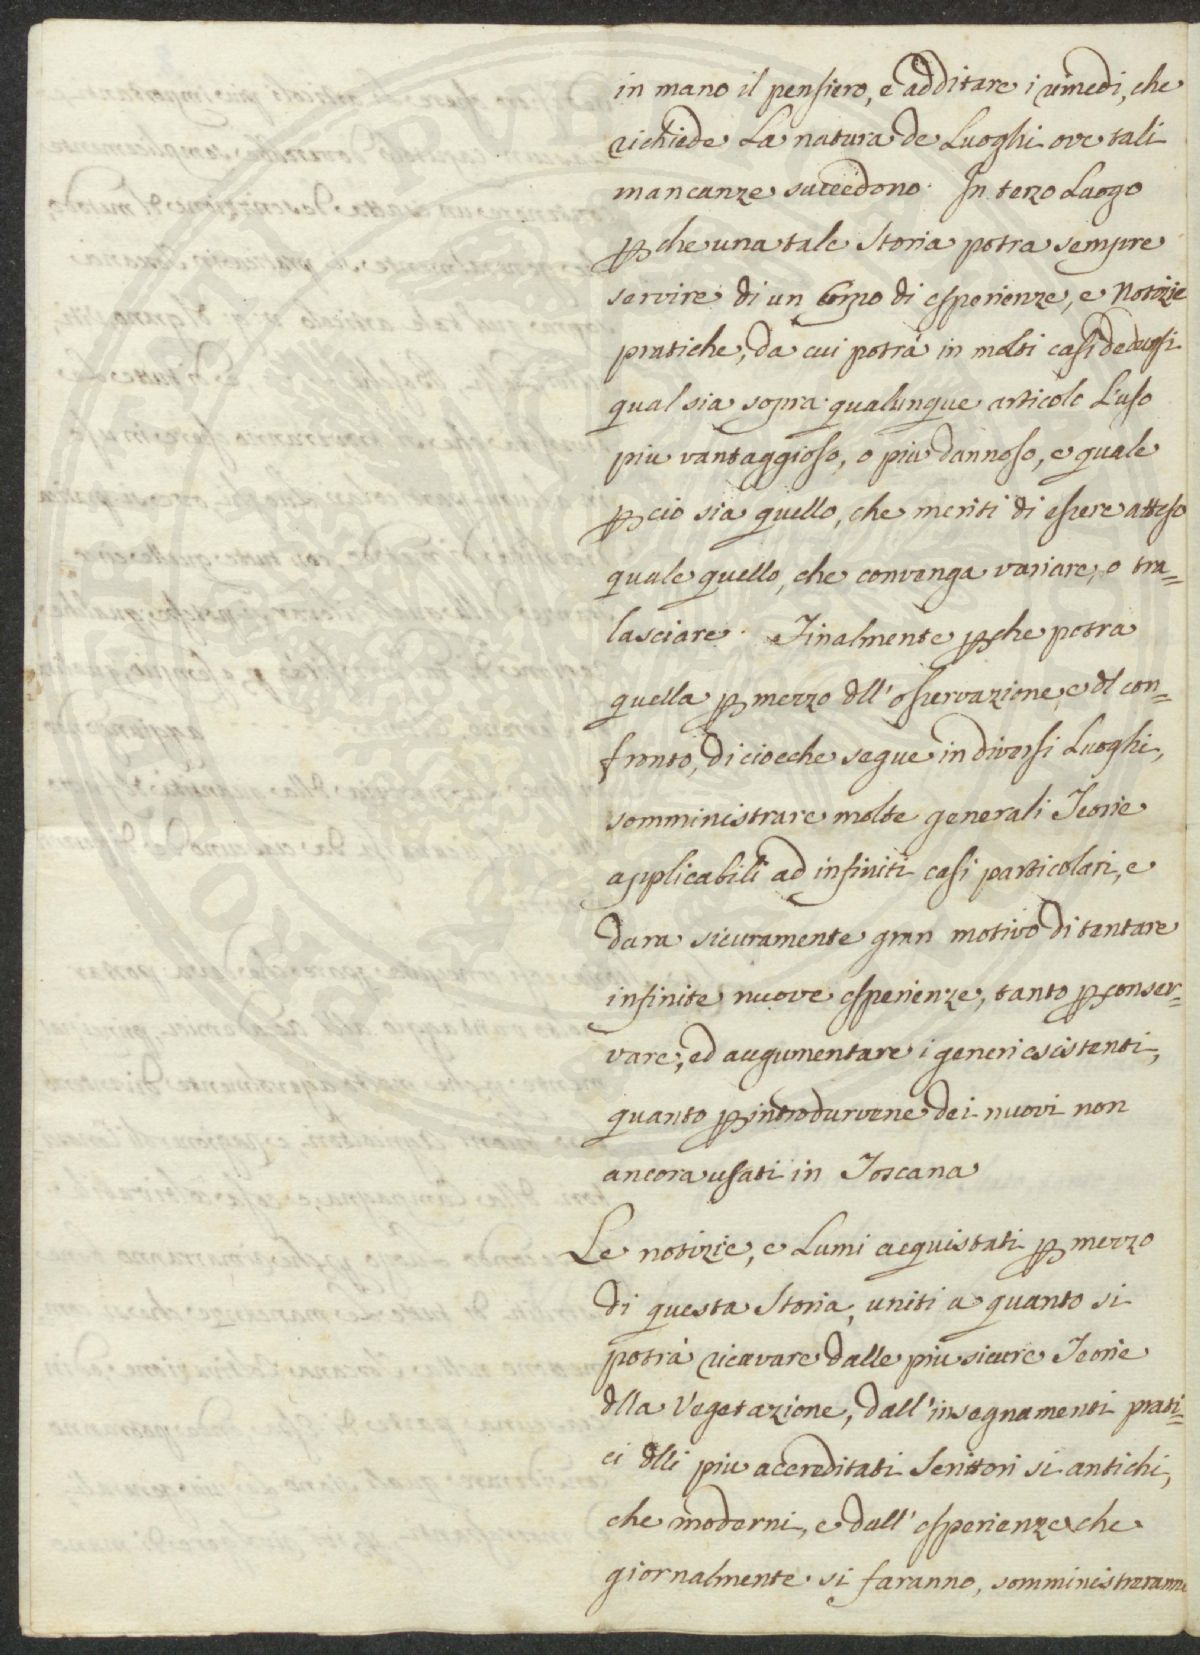 in mano il pensiero, e additare i rimedi, che
richiede La natura de Luoghi ove tali
mancanze succedono. In terzo Luogo
p che una tale Storia potra sempre
servire di un Corpo di esperienze, e Notizie
pratiche, da cui potrà in molti casi dedursi
qual sia sopra qualunque articolo L'uso
piu vantaggioso, o piu dannoso, e quale
p cio sia quello, che meriti di essere atteso
quale quello, che convenga variare, o tra=
lasciare. Finalmente p che potra
quella p mezzo dll' osservazione, e dl con=
fronto, di ciocche segue in diversi Luoghi,
somministrare molte generali Teorie
applicabili ad infiniti casi particolari, e
dara sicuramente gran motivo di tentare
infinite nuove esperienze, tanto p conser=
vare, ed augumentare i generi esistenti,
quanto p introdurvene dei nuovi non
ancora usati in Toscana
Le notizie, e Lumi acquistati p mezzo
di questa Storia, uniti a quanto si
potrà ricavare dalle piu sicure Teorie
dlla Vegetazione, dall'insegnamenti prati=
ci dlli piu accreditati Scrittori si antichi,
che moderni, e dall' esperienze che
giornalmente si faranno, somministreranno